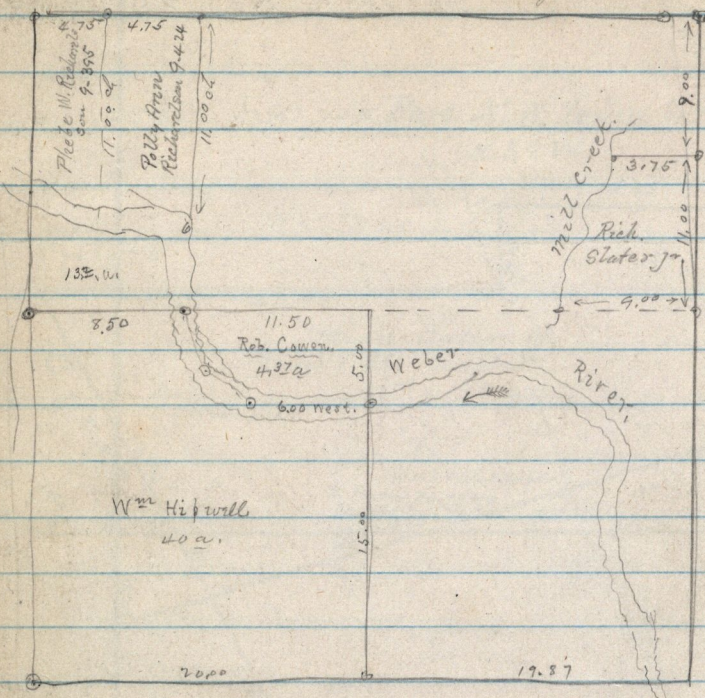 4.75
4.75
Phebe M. Richard-
son 9-395
11.00 ch
Polly Ann
Richardson 9-424
11.00 ch
9.00
Mill Creek.
3.75
11.00
Rich.
Slater Jr.
9.00
8.50
11.50
Rob. Cowen.
4.37 a
5.00
Weber
River,
6.00 West.
Wm Hipwell
40 a.
15.00
20.00
19.87